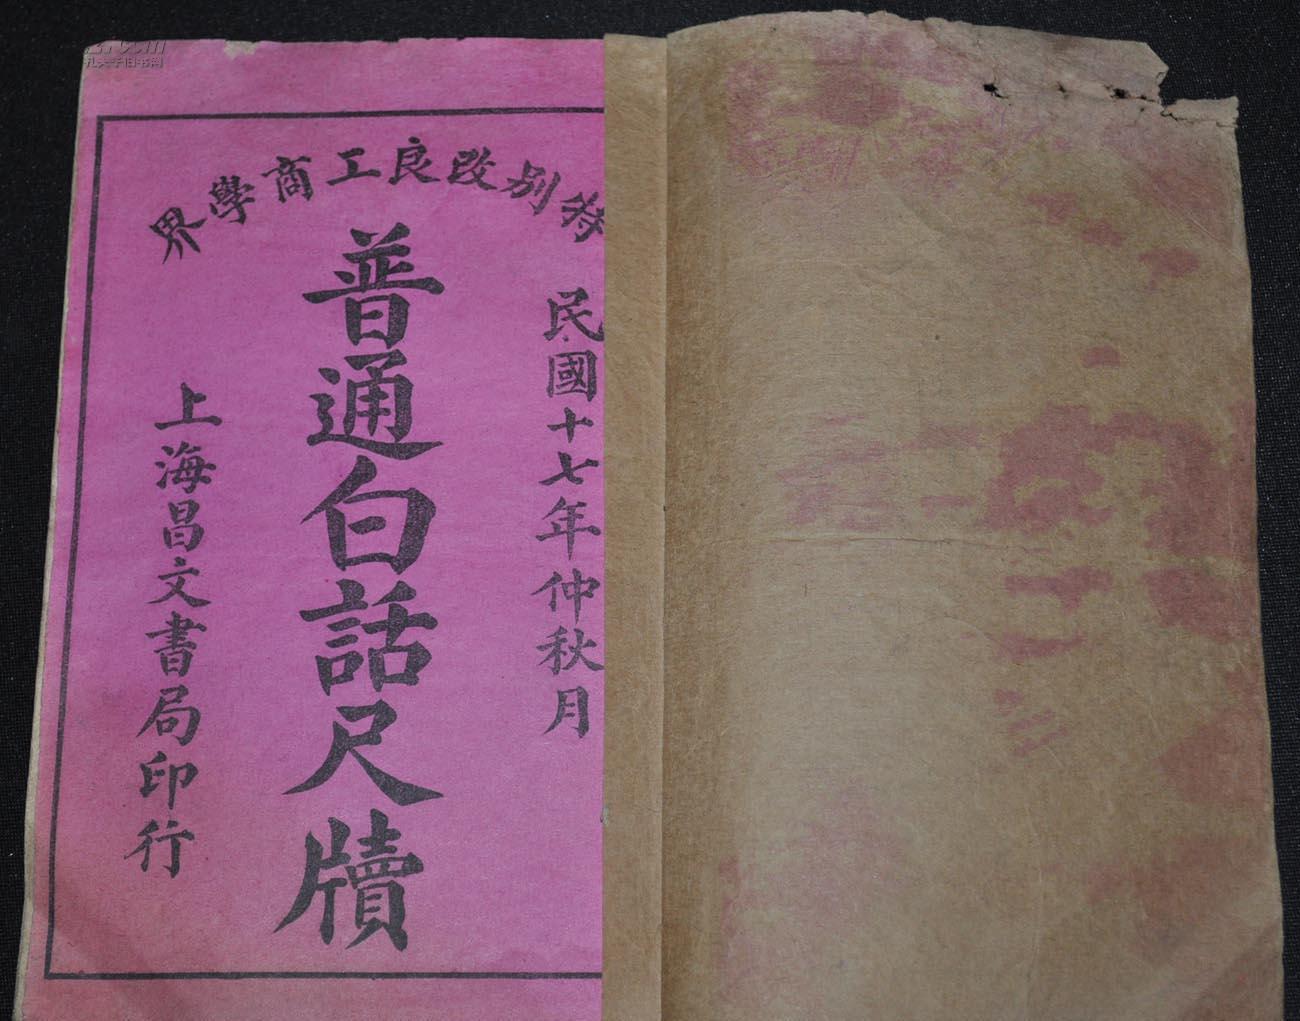 特别改良工商學界
民國十七年仲秋月
普通白話尺牘
上海昌文書局印行